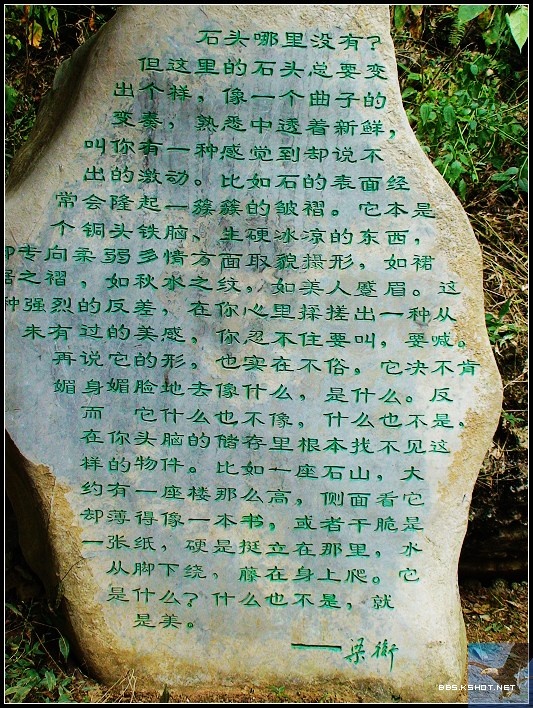 石头哪里没有?
但这里的石头总要变
出个样,像一个曲子的
变奏,熟悉中透着新鲜,
叫你有一种感觉到却说不
出的激动。比如石的表面经
常会隆起一簇簇的皱褶。它本是
个铜头铁脑,生硬冰凉的东西,
专向柔弱多情方面取貌摄形,如裙
之褶,如秋水之纹,如美人蹙眉。这
种强烈的反差,在你心里揉搓出一种从
未有过的美感,你忍不住要叫,要喊。
再说它的形,也实在不俗,它决不肯
媚身媚脸地去像什么,是什么。反
而 它什么也不像,什么也不是,
在你头脑的储存里根本找不见这
样的物件。比如一座石山,大
约有一座楼那么高,侧面看它
却薄得像一本书,或者干脆是
一张纸,硬是挺立在那里,水
从脚下绕,藤在身上爬。它
是什么?什么也不是,就
是美。
——梁衡
BBS.KSHOT.NET